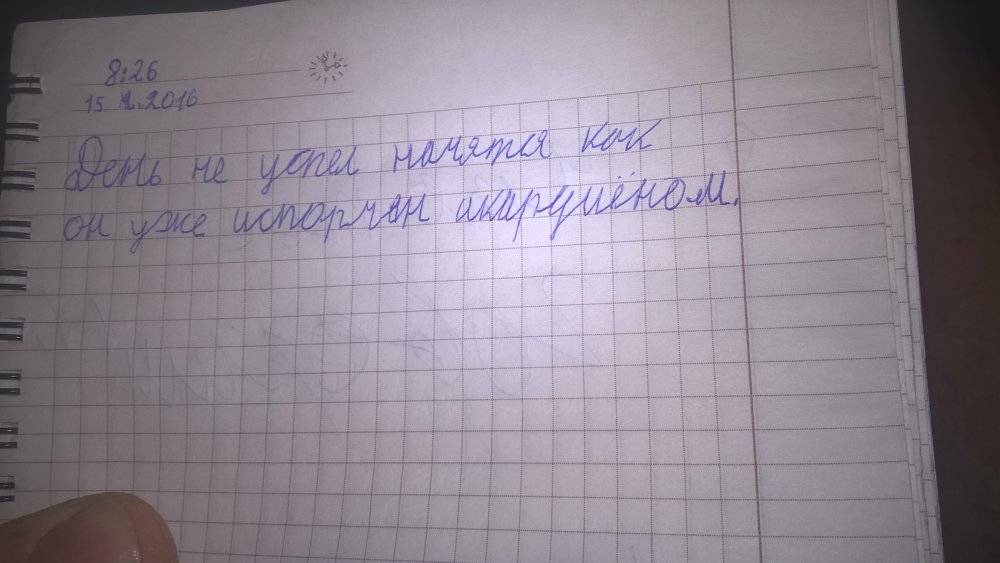 8:26
15 2.2016
День не успел начятся как
он уже испорчен акардиёном.